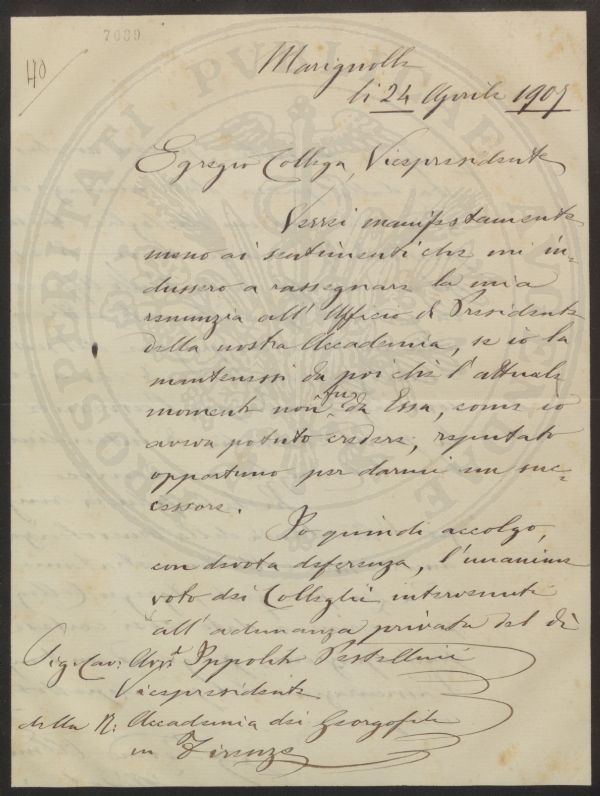 7039
40
Marignolle
li 24 Aprile 1907
Egregio Collega, Vicepresidente
Verrei manifestamente
meno ai sentimenti che mi in=
dussero a rassegnare la mia
renunzia all' Ufficio di Presidente
della nostra Accademia, se io la
mantenessi da poi che l'attuale
momento non fu da Essa, come io
aveva potuto credere, reputato
opportuno per darmi un suc=
cessore.
Io quindi accolgo,
con devota deferenza, l'unanime
voto dei Colleghi intervenuti
all' adunanza privata del dì
Sig. Cav: Avv.t Ippolito Pestellini
Vicepresidente
della R: Accademia dei Georgofili
in Firenze
PROSPERITATI PUBLICAE AUGENDAE